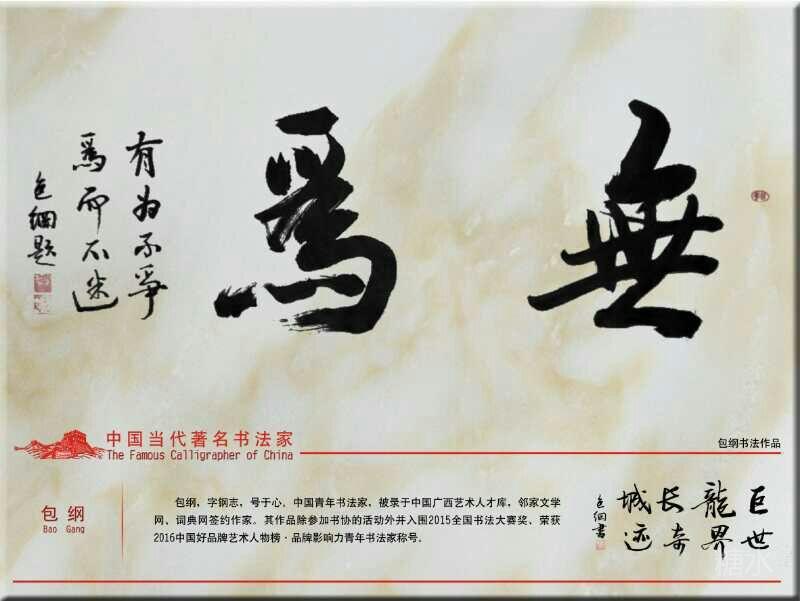 無爲
有为不爭
爲而不迷
包綱题
中国当代著名书法家
The Famous Calligrapher of China
包纲书法作品
包 纲
Bao Gang
包纲，字钢志，号于心，中国青年书法家，被录于中国广西艺术人才库，邻家文学
网、词典网签约作家。其作品除参加书协的活动外并入围2015全国书法大赛奖、荣获
2016中国好品牌艺术人物榜·品牌影响力青年书法家称号。
巨龍长城
世界奇迹
包綱書
糖水